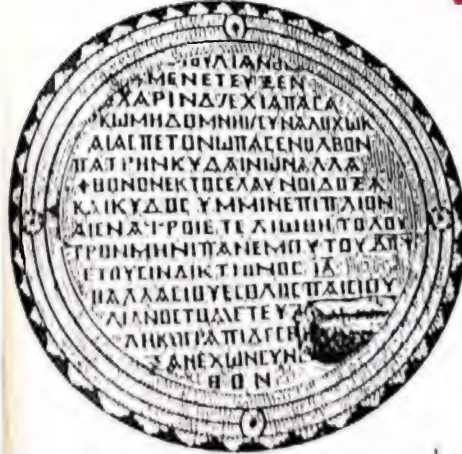 ΙΟΥΛΙΑΝΟ
ΜΕΝΕΤΕΥΞΕΝ
ΧΑΡΙΝΔΕΧΙΑΠΑΣΑ
ΚΩΜΗΔΟΜΝΗΣΥΝΑΛΟΧΩΚ
ΑΙΑΣΠΕΤΟΝΩΠΑΣΕΝΟΛΒΟΝ
ΠΑΤΡΗΝΚΥΔΑΙΝΩΝΑΛΛΑ
ΦΘΟΝΟΝΕΚΤΟΣΕΛΑΥΝΟΙΔΟΞΑ
ΚΑΙΚΥΔΟΣΥΜΜΙΝΕΠΙΠΛΙΟΝ
ΑΙΕΝΑΤΡΟΙΕΤΕΛΙΩΘΗΤΟΛΟΥ
ΤΡΟΝΜΗΝΙΠΑΝΕΜΟΥΤΟΥΑΠΥ
ΕΤΟΥΣΙΝΔΙΚΤΙΩΝΟΣΙΑ
ΘΑΛΛΑΣΙΟΥΕΣΘΛΟΣΠΑΙΣΙΟΥ
ΛΙΑΝΟΣΤΟΔΕΤΕΥΞ
ΞΑΝΕΧΩΝΣΥΝΕ
ΘΟΝ